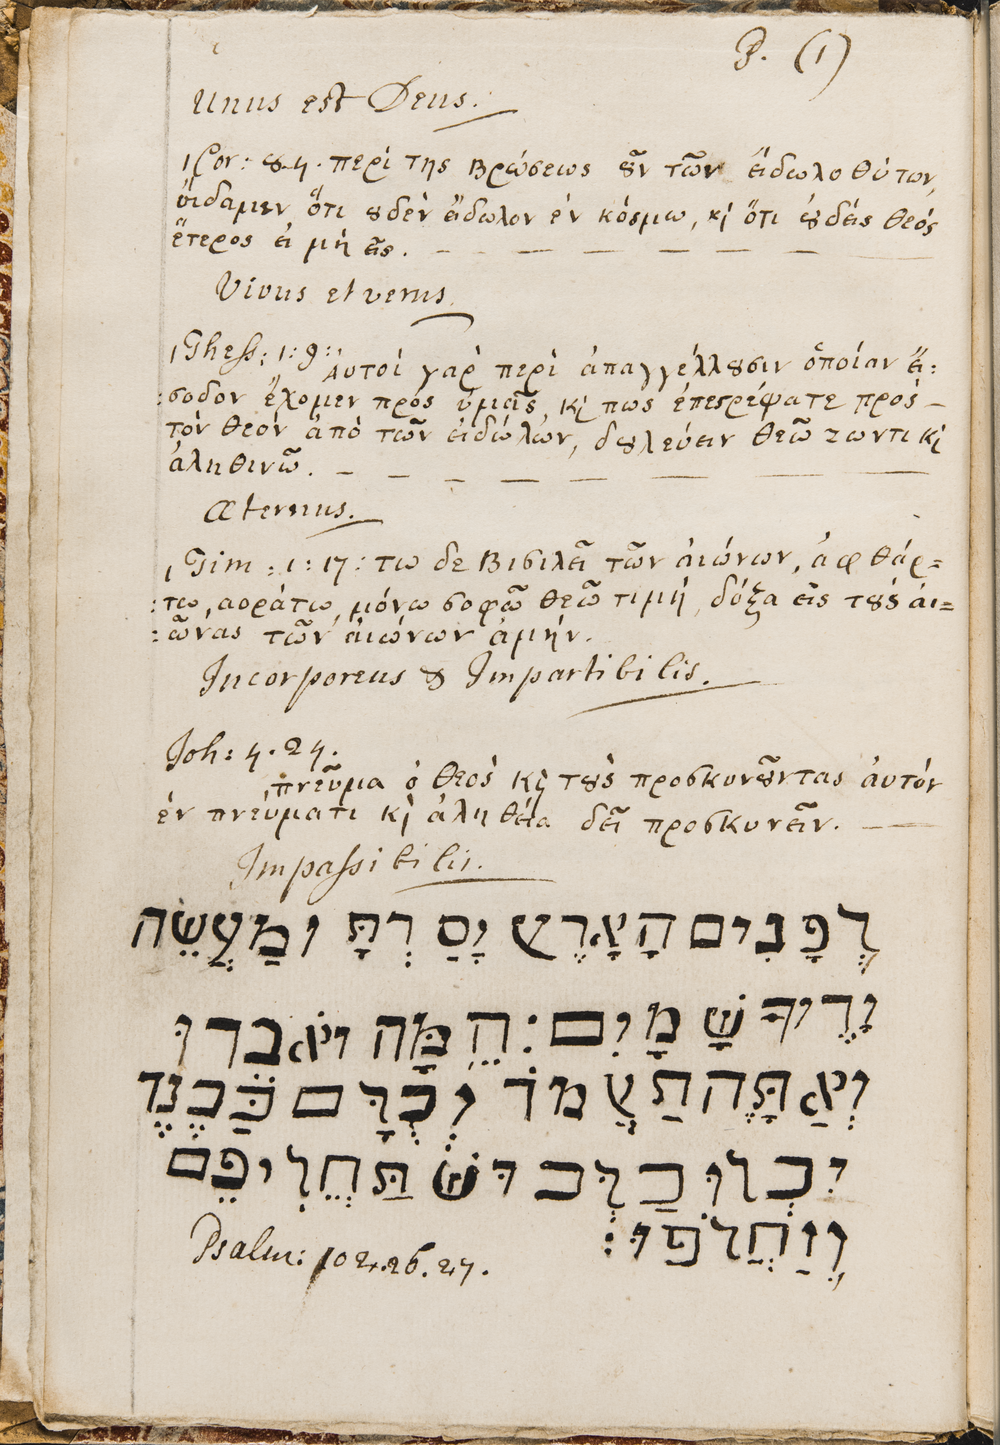 P. (1)
Unus est Deus.
1 Cor: 8.4. περὶ της βρώσεως ȣ̃ν τῶν εἰδωλοθύτων,
οἴδαμεν ὅτι ȣδὲν εἴδωλον ἐν κόσμω, κỳ ὅτι ȣδεὶς θεὸς
ἕτερος εἰ μὴ εἷς.
Vivus et verus.
1 Thess: 1: 9: Αυτοὶ γαρ περὶ ἀπαγγέλλȣσιν ὁποίαν εἴ:
:σοδον ἔχομεν πρὸς ὑμᾶς, κỳ πως ἐπεϛρέψατε πρὸς
τὸν θεὸν ἀπὸ τῶν εἰδώλων, δȣλεύειν θεῶ ζωντι κỳ
ἀληθινῶ.
Æternus.
1 Tim: 1: 17: τω δε Βισιλεῖ τῶν ἀιώνων, ἀφθάρ=
:τω, αοράτω, μόνω σοφῶ θεῶ τιμὴ, δόξα εῖς τȣ̀ς ἀι=
:ῶνας τῶν ἀιώνων ἀμήν.
Incorporeus & Impartibilis.
Joh: 4. 24.
πνεῦμα ὁ θεὸς κỳ τȣ̀ς προσκυνȣ̃ντας ἀυτὸν
ἐν πνεύματι κỳ ἀληθέια δεῖ προσκυνεῖν.
Impassibilis.
לְפָנִים הָאָרֶץ יָסַרְתָּ ומַעֲשֵׂה
יָדֶיךָ שָׁמָיִם: הֵמָּה יֹאבדוּ
וְאַתָּה תַעֲמֹד וְכֻלָּם כַּבֶּגֶד
יִבְלוּ כַּלְּבוּשׁ תַּחֲלִיפֵם
וְיַחֲלֹפוּ:
Psalm: 102.26.27.